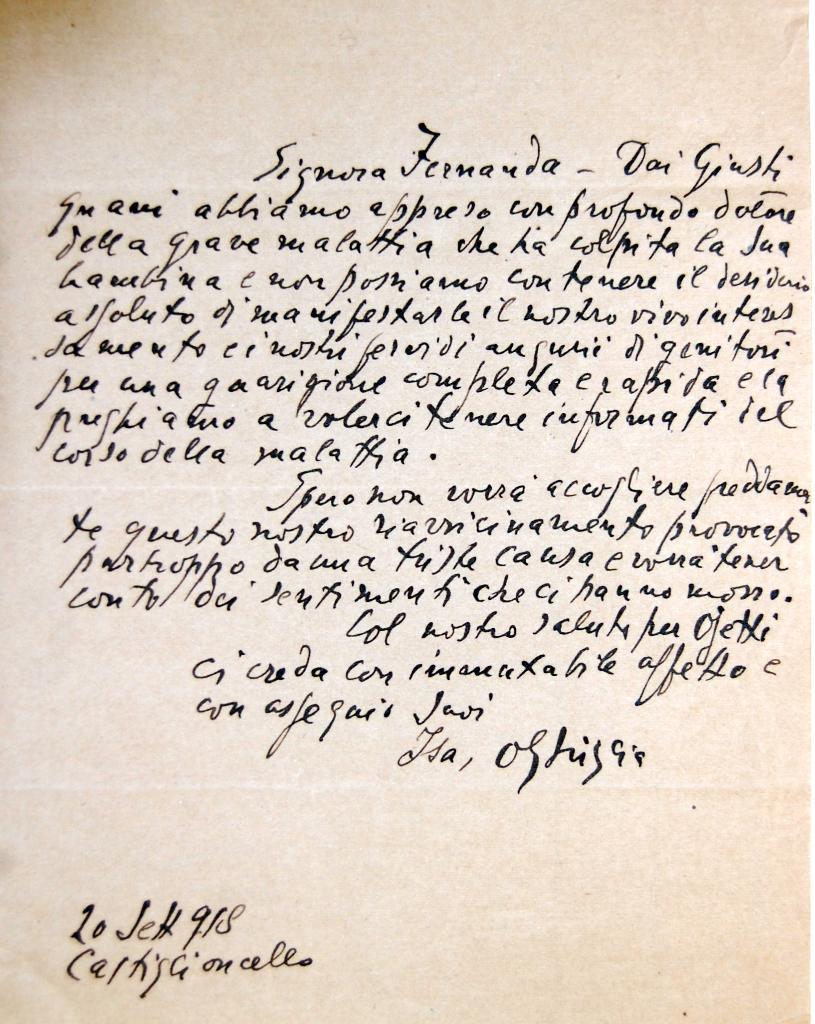 Signora Fernanda – Dai Giusti
quani abbiamo appreso con profondo dolore
della grave malattia che ha colpita la Sua
bambina e non possiamo contenere il desiderio
assoluto di manifestarle il nostro vivo interes
samento e i nostri fervidi augurii di genitori
per una guarigione completa e rapida e la
preghiamo a volerci tenere informati del
corso della malattia.
Spero non vorrà accogliere freddamen
te questo nostro riavvicinamento provocato
purtroppo da una triste causa e vorrà tener
conto dei sentimenti che ci hanno mosso.
Col nostro saluto per Ojetti
ci creda con immutabile affetto e
con ossequio Suoi
Isa,
20 Sett 918
Castiglioncello